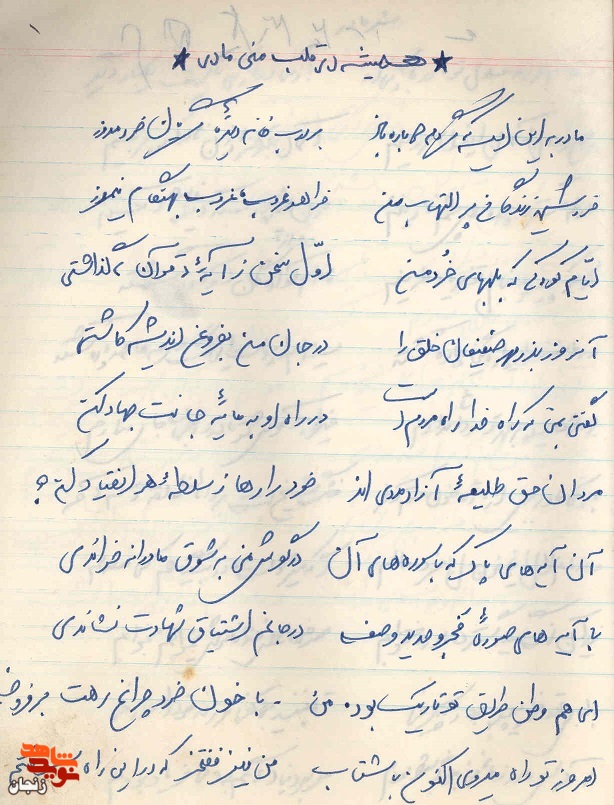 ★ همیشه در قلب منی مادر ★
مادر به این امید که شهرم دوباره باز بر درب خانه دیده خود مدوز
فردا غروب غروب نیموز
ایام کودکی که بلبهای خُرد من اوّل سخن ز آیهٔ قرآن گذاشتی
آنروز بذر مهر ضعیفان خلق را در جان من بفروغ اندیشه کاشتی
گفتی بمن که راه خدا راه مردم است در راه او به مایهٔ جانت جهاد کن
مردان حق طلیعهٔ آزادمردی اند خود را رها ز سلطهٔ هر انقیاد کن؟
آن آیه‌های پاک که با سوره‌های آن در گوش من به شوق مادرانه خواندی
با آیه های سورهٔ فجر و حدید و صف در جانم اشتیاق شهادت نشاندی
ای هم وطن طریق تو تاریک بوده من با خون خود چراغ رهت بر
امروز تو راه میروی اکنون با شتاب من نیز مفتخر که در این راه
شاهد
نوید
زنجان